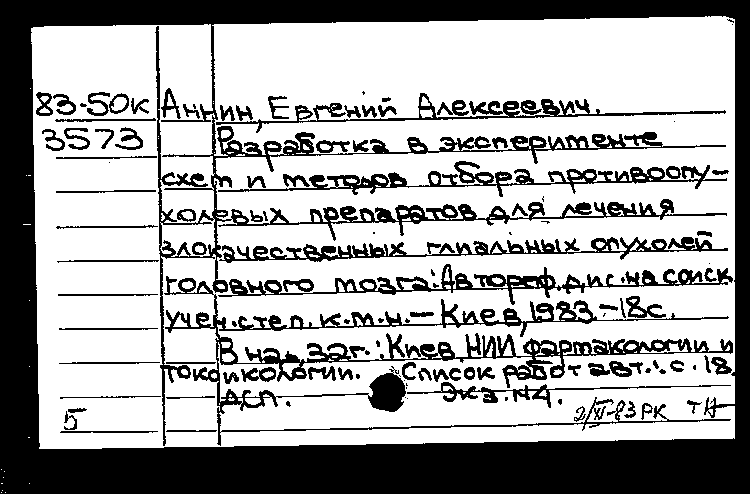 83-50к Аннин, Евгений Алексеевич.
3573 Разработка в эксперименте
схем и методов отбора противоопу-
холевых препаратов для лечения
злокачественных глиальных опухолей
головного мозга: Автореф. дис. на соиск
учен. степ. к.м.н. — Киев, 1983. — 18с.
В над. заг.: Киев. НИИ фармакологии и
токсикологии. Список работ авт.: с. 18
ДСП. Экз. №4.
5 2/XI-83 РК ТН